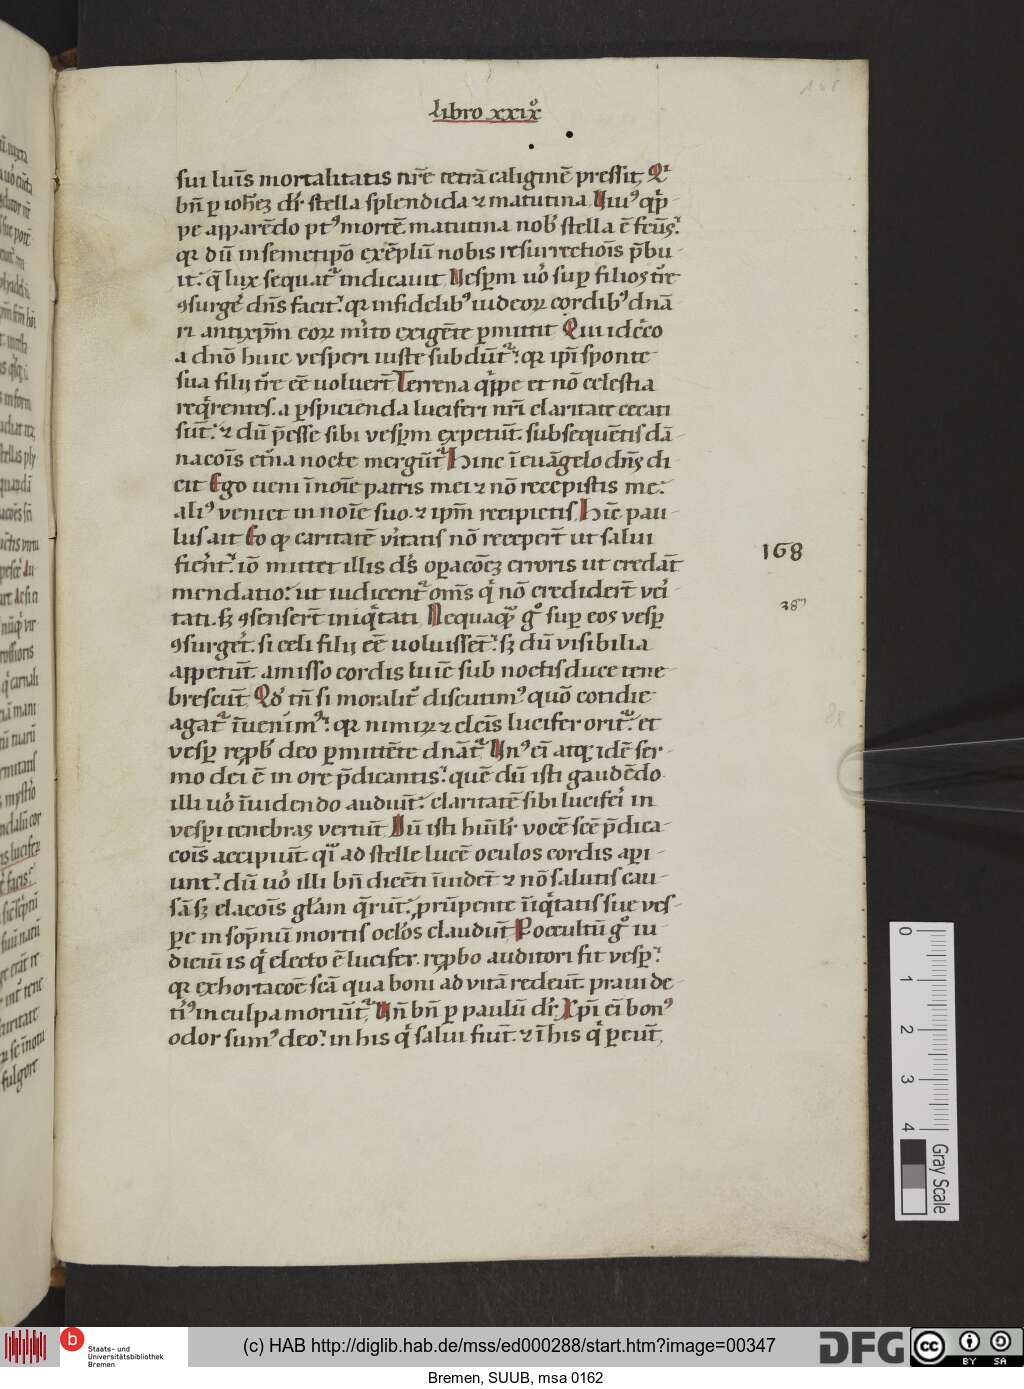 libro xxixº
sui luı̄s mortalitatis nr̄e tetrā caliginē pressit, Qı
bn̄ p ioh̄ez dr̄ stella splendida ⁊ matutina. Cuiꝰ qͥp-
pe apparēdo ptꝰ mortē matutina nob̄ stella ē fc̄us.
qꝛ dū in semetip̄o exēplū nobis resurrectiōis p̄bu-
it. q̄ lux sequat᷑ indicauit. Vesꝑm uo᷎ suꝑ filios t̄re
ꝯsurge᷎ dn̄s facit. qꝛ infidelibꝰ iudeoꝝ cordibꝰ dnā-
ri antixp̄m eoꝝ m̄ito exigēte ꝑmittit. Qui idc̄co
a dn̄o huic vesperi iuste subdūt᷑. qꝛ ip̄i sponte
sua filij t̄re ēe uoluer̄t. Terrena qͥppe et nō celestia
reqͥrentes. a ꝑspicienda luciferi nr̄i claritate cecati
sūt. ⁊ dū p̄esse sibi vesꝑm expetūt. subsequētis dā-
nacōis et̄na nocte mergūt᷑. Hinc ı̄ euāgelo dn̄s di-
cit Ego ueni ı̄ noı̄e patris mei ⁊ nō recepistis me.
aliꝰ veniet in noı̄e suo. ⁊ ip̄m recipietis. Hı̄c pau-
lus ait Eo ꝙ caritatē v̄itatis nō receper̄t ut salui
fier̄ent. iō mittet illis d̄s oꝑacōez erroris ut credāt
mendatio. ut iudicent᷑ om̄s qͥ nō credider̄t ve᷎i-
tati. sꝫ ꝯsenser̄t iniqͥtati. Nequaqͣ gͦ suꝑ eos vesꝑ
ꝯsurge᷎t. si celi filij ēe uoluissēt. sꝫ dū visibilia
appetūt. amisso cordis luı̄e sub noctis duce tene-
brescūt. Qd᷎ tn̄ si moralit᷎ discutimꝰ quō cotidie
agat᷑ ı̄uenimꝰ. qꝛ nimiꝝ ⁊ elc̄is lucifer orit᷑. et
vesꝑ rep̄b᷎ deo ꝑmittēte dnāt᷑. Vnꝰ eī atqꝫ idē ser-
mo dei ē in ore p̄dicantis. quē dū isti gaudēdo.
illi uo᷎ ı̄uidendo audiūt. claritatē sibi lucife᷎i in
vesꝑi tenebras vertūt. Dū isti hūil᷎r vocē scē p̄dica-
cōis accipiūt. qͣi ad stelle lucē oculos cordis aꝑi-
unt. dū uo᷎ illi bn̄ dicēti ı̄uidēt ⁊ nō salutis cau-
sā sꝫ elacōis gl᷎am q̄rūt. prūpente ı̄iqͥtatis sue ves-
ꝑe in sop̄nū mortis oc᷎los claudūt. P occultū gͦ iu-
diciū is qͥ electo ē lucifer. rep̄bo auditori fit vesꝑ.
qꝛ exhortacōe scā qua boni ad vitā redeūt. praui de-
tiꝰ in culpa moriūt᷑. Vn̄ bn̄ p paulū dr̄. Xpi eī bonꝰ
odor sumꝰ deo. in his qͥ salui fiūt. ⁊ ı̄ his qͥ ꝑeūt,
168
0
1
2
3
4
Gray Scale
b
Staats- und
Universitätsbibliothek
Bremen
(c) HAB http://diglib.hab.de/mss/ed000288/start.htm?image=00347
DFG
cc
BY SA
Bremen, SUUB, msa 0162